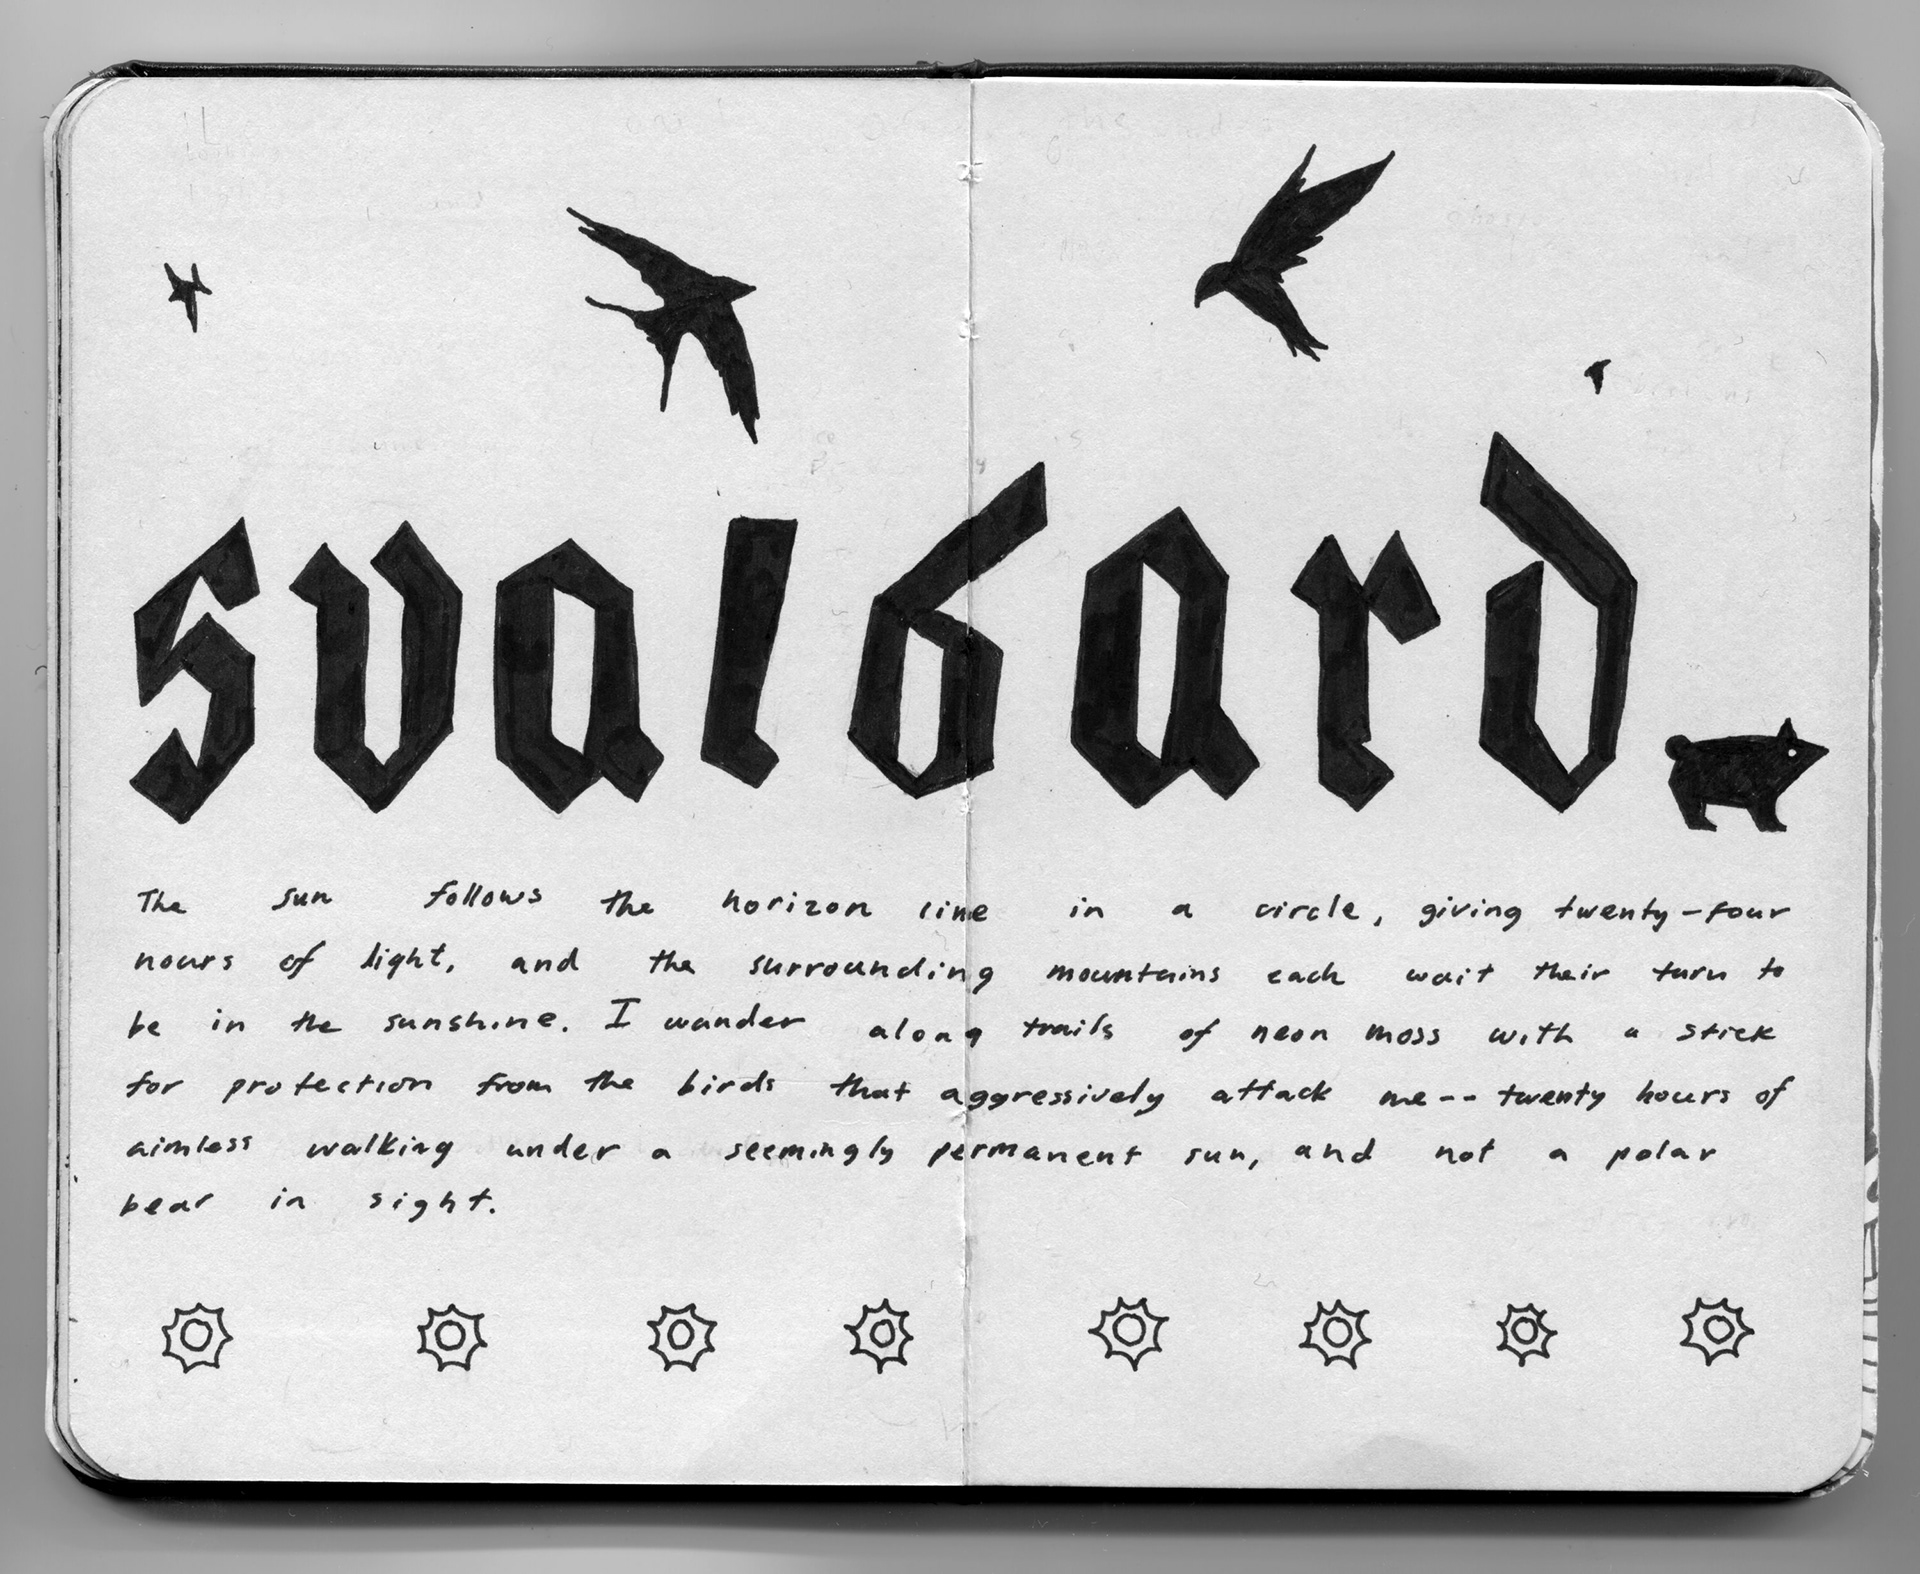 svalbard
The sun follows the horizon line in a circle, giving twenty-four
hours of light, and the surrounding mountains each wait their turn to
be in the sunshine. I wander along trails of neon moss with a stick
for protection from the birds that aggressively attack me-- twenty hours of
aimless walking under a seemingly permanent sun, and not a polar
bear in sight.